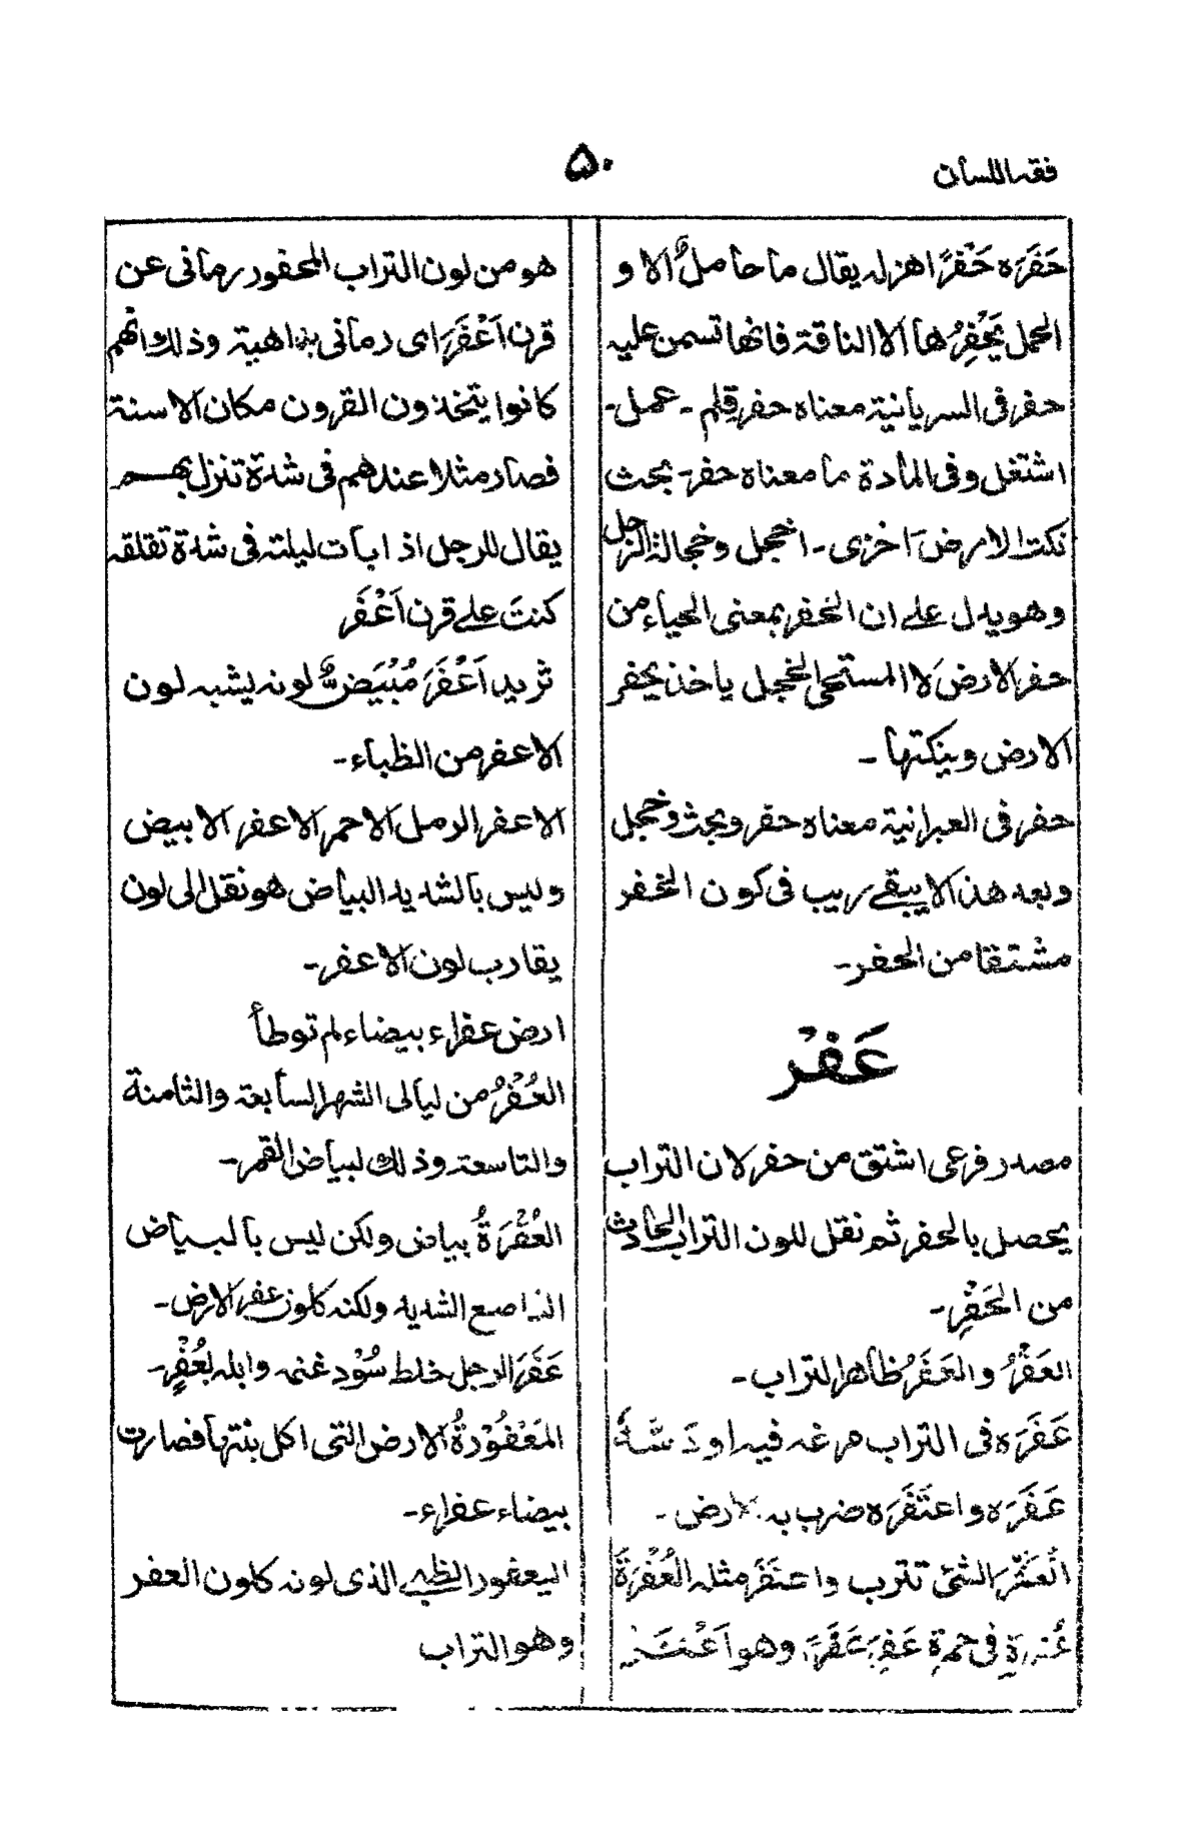 فقه اللسان
۵۰
حَفَرَه حَفْرًا هزله يقال ما حامل الا و
الحمل يَحْفِرُها الا الناقة فانها تسمن عليه
حفر فى السريانية معناه حفر قلم - عمل -
اشتغل وفى المادة ما معناه حفر - بحث
نكت الارض اخزى - اخجل وخجالة الرجل
وهو يدل على ان الخفر بمعنى الحياء من
حفر الارض لان المستحى الخجل ياخذ يحفر
الارض وينكتها -
حفر فى العبرانية معناه حفر وبحث وخجل
وبعد هذا لا يبقى ريب فى كون الخفر
مشتقا من الحفر -
عَفْر
مصدر فرعى اشتق من حفر لان التراب
يحصل بالحفر ثم نقل للون التراب الحادث
من الحَفْرِ -
العَفْرُ والعَفَرُ ظاهر التراب -
عَفَرَه فى التراب مرغه فيه او دَسَّهُ
عَفَرَه واعتَفَرَه ضرب به الارض -
انْعَفَرَ الشئ تترب واعتَفَرَ مثله العُفْرَةُ
غُبْرَة فى حمرة عَفِرَ عَفَرًا وهو اَعْفَر
هو من لون التراب المحفور رمانى عن
قرن اَعْفَرَ اى رمانى بداهية وذلك انهم
كانوا يتخذون القرون مكان الاسنة
فصار مثلا عندهم فى شدة تنزل بهم
يقال للرجل اذا بات ليلته فى شدة تقلقه
كنتَ على قرن اَعْفَر
ثريد اَعْفَرَ مُبْيَضٌّ لونه يشبه لون
الاعفر من الظباء -
الاعفر الرمل الاحمر الاعفر الابيض
وليس بالشديد البياض هو نقل الى لون
يقارب لون الاعفر -
ارض عفراء بيضاء لم توطأ
العُفْرُ من ليالى الشهر السابعة والثامنة
والتاسعة وذلك لبياض القمر -
العُفْرَةُ بياض ولكن ليس بالبياض
الناصع الشديد ولكنه كلون عفر الارض -
عَفَّرَ الرجل خلط سُوْد غنمه وابله بعُفْرٍ -
المَعْفُوْرَةُ الارض التى اكل نبتها فصارت
بيضاء عفراء -
اليعفور الظبى الذى لونه كلون العفر
وهو التراب